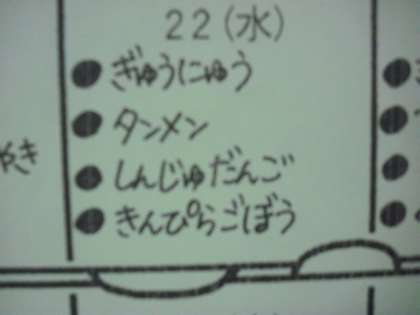 22(水)
●ぎゅうにゅう
●タンメン
●しんじゅだんご
●きんぴらごぼう
やき